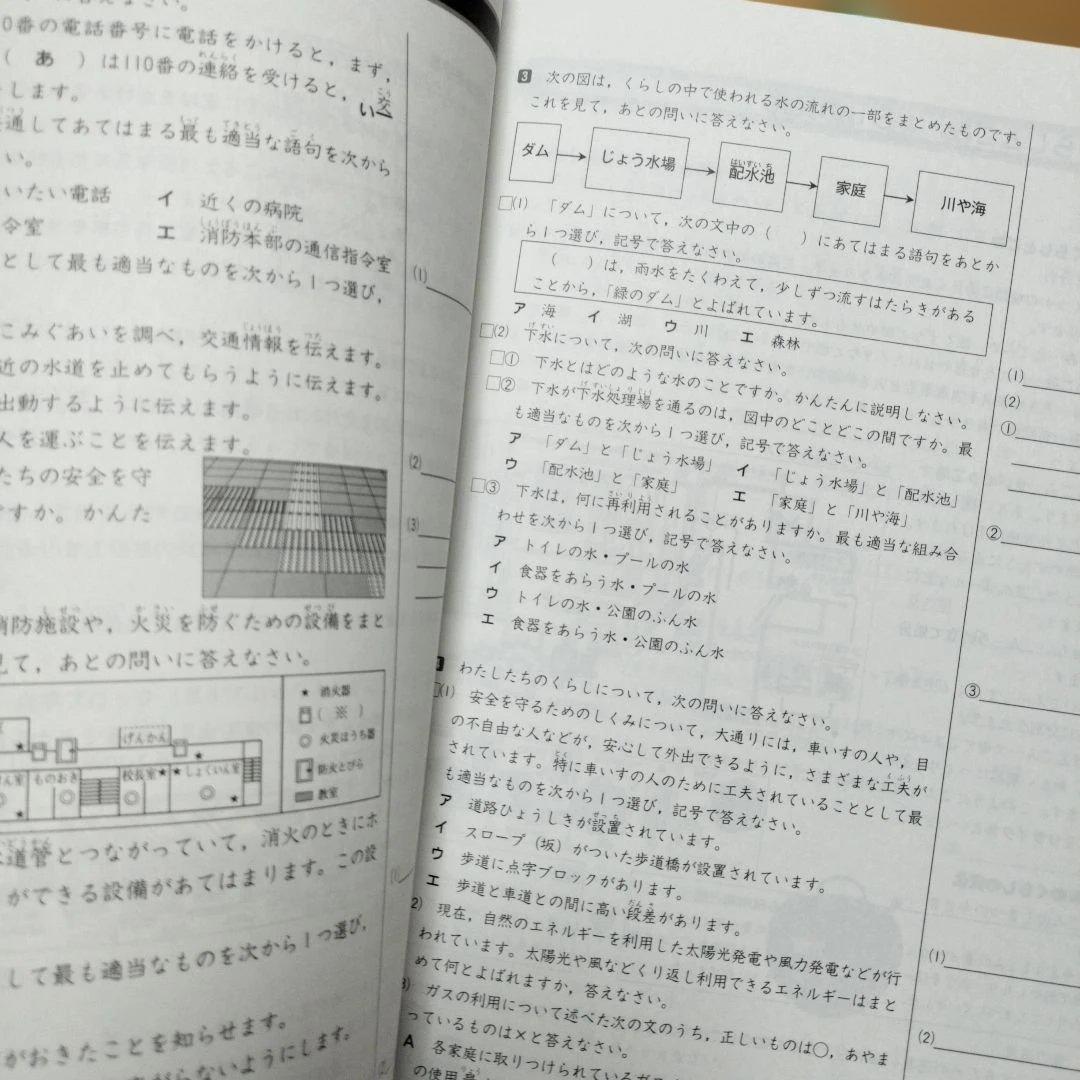 0番の電話番号に電話をかけると，まず，
（ あ ）は110番の連絡を受けると，い
します。
通してあてはまる最も適当な語句を次から
い。
いたい電話 イ 近くの病院
令室 エ 消防本部の通信指令室
として最も適当なものを次から1つ選び，
こみぐあいを調べ，交通情報を伝えます。
近の水道を止めてもらうように伝えます。
出動するように伝えます。
人を運ぶことを伝えます。
たちの安全を守
ですか。かんた
消防施設や，火災を防ぐための設備をまと
見て，あとの問いに答えなさい。
★ 消火器
（ ※ ）
◎ 火災ほうち器
防火とびら
教室
げんかん
ものおき
校長室
しょくいん室
水道管とつながっていて，消火のときにホ
ができる設備があてはまります。この設
して最も適当なものを次から1つ選び，
がおきたことを知らせます。
がらないようにします。
(1)
(2)
(3)
3 次の図は，くらしの中で使われる水の流れの一部をまとめたものです。
これを見て，あとの問いに答えなさい。
ダム → じょう水場 → 配水池 → 家庭 → 川や海
□(1) 「ダム」について，次の文中の（ ）にあてはまる語句をあとか
ら1つ選び，記号で答えなさい。
（ ）は，雨水をたくわえて，少しずつ流すはたらきがある
ことから，「緑のダム」とよばれています。
ア 海 イ 湖 ウ 川 エ 森林
□(2) 下水について，次の問いに答えなさい。
□① 下水とはどのような水のことですか。かんたんに説明しなさい。
□② 下水が下水処理場を通るのは，図中のどことどこの間ですか。最
も適当なものを次から1つ選び，記号で答えなさい。
ア 「ダム」と「じょう水場」 イ 「じょう水場」と「配水池」
ウ 「配水池」と「家庭」 エ 「家庭」と「川や海」
□③ 下水は，何に再利用されることがありますか。最も適当な組み合
わせを次から1つ選び，記号で答えなさい。
ア トイレの水・プールの水
イ 食器をあらう水・プールの水
ウ トイレの水・公園のふん水
エ 食器をあらう水・公園のふん水
わたしたちのくらしについて，次の問いに答えなさい。
□(1) 安全を守るためのしくみについて，大通りには，車いすの人や，目
の不自由な人などが，安心して外出できるように，さまざまな工夫が
されています。特に車いすの人のために工夫されていることとして最
も適当なものを次から1つ選び，記号で答えなさい。
ア 道路ひょうしきが設置されています。
イ スロープ（坂）がついた歩道橋が設置されています。
ウ 歩道に点字ブロックがあります。
エ 歩道と車道との間に高い段差があります。
2) 現在，自然のエネルギーを利用した太陽光発電や風力発電などが行
われています。太陽光や風などくり返し利用できるエネルギーはまと
めて何とよばれますか，答えなさい。
3) ガスの利用について述べた次の文のうち，正しいものは○，あやま
っているものは×と答えなさい。
A 各家庭に取りつけられているガス
の使用
(1)
(2)
①
②
③
(1)
(2)